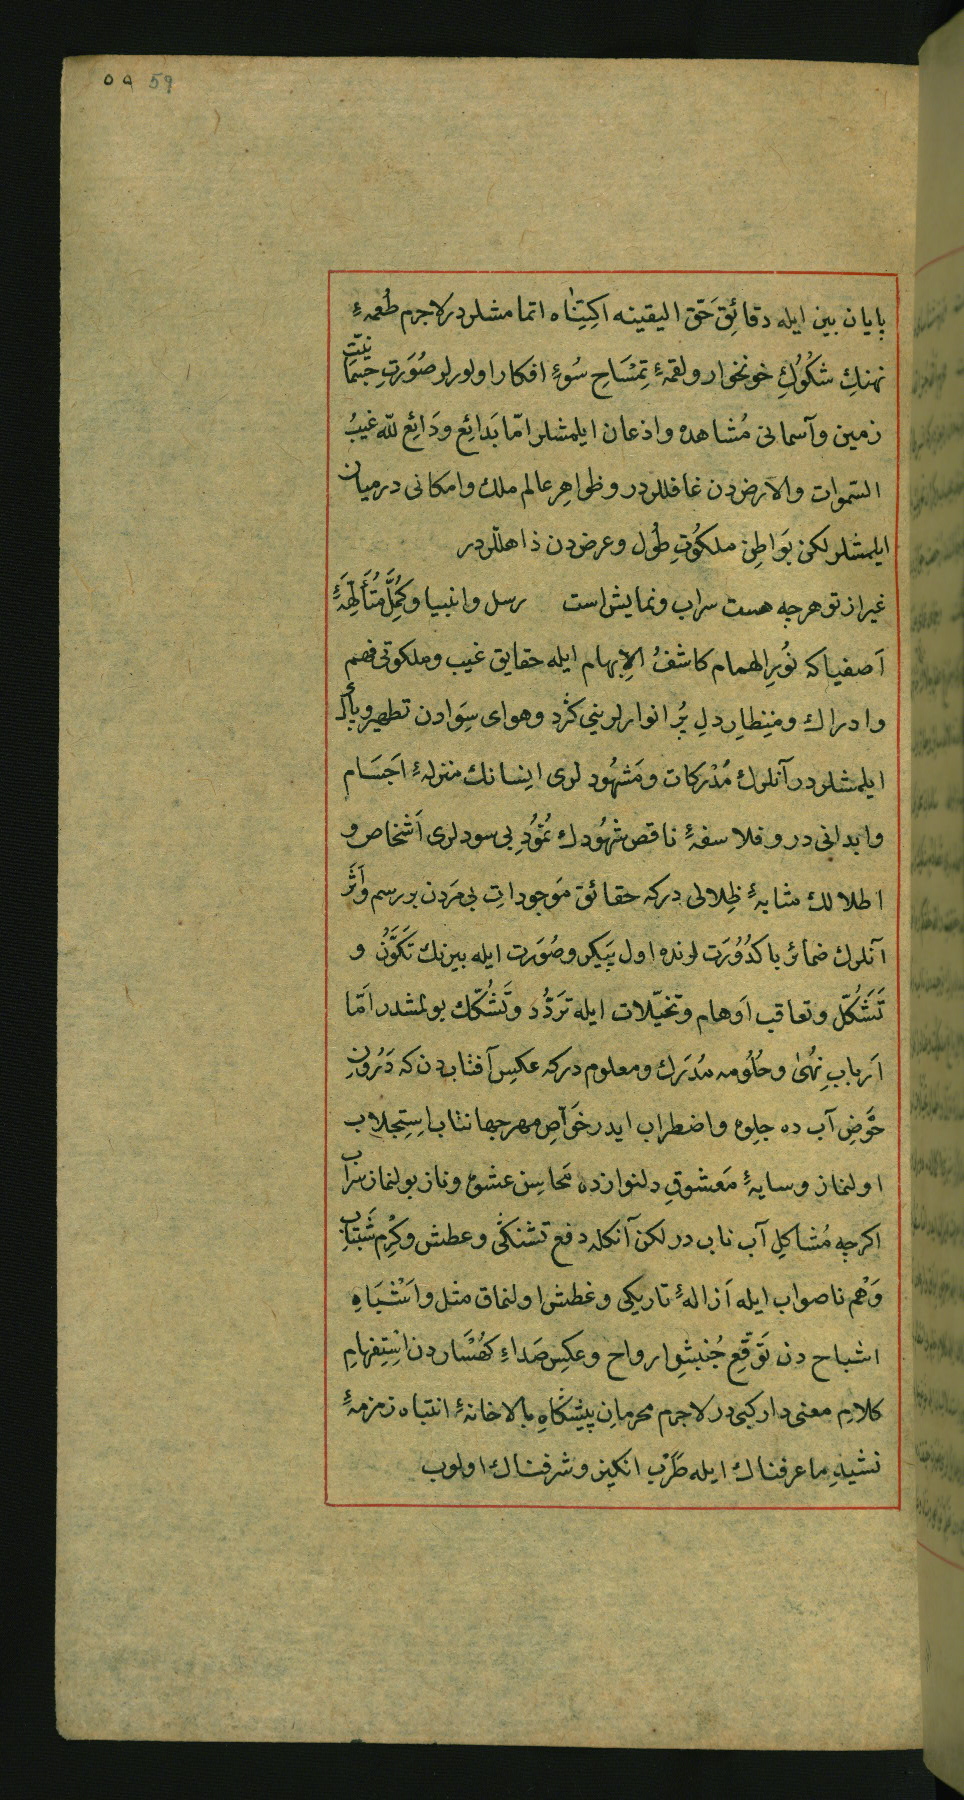 ۵۹ 59
پایان بین ایله دقائقِ حَقّ الیقینه اکتِنٰاه اتمامشلردر لاجرم طُعمهٔ
نهنكِ شكُوُكِ خونخوار و لقمهٔ تِمْسَاحِ سُوءِ افکار اولورلر صُوَرتِ جسمانیّتِ
زمین و آسمانی مُشاهده و اذعان ایلمشلر امّا بَدائِع ودَائِع للّه غیبُ
السّموات والارضدن غافللردر و ظواهِرِ عالم ملك و امکانی درمیان
ایلمشلر لکن بَوَاطِن ملکُوتِ طُول و عرضدن ذاهللردر
غیر از تو هرچه هست سراب و نمایش است رسل و انبیا و کُمَّلِ مُتَألِّهَهٔ
اَصفیاکه نوُرِ الهام کاشفُ الاِبهام ایله حقایق غیب و ملکوتی فهم
و ادراك و دلِ پُر انوارلرینی کرد و هوای سِوَادن تطهیر و پاك
ایلمشلردر آنلرك مُدْرکات و مَشهُودلری اِنسانك منزلهٔ اَجسَام
و ابدانی در و فلاسفهٔ ناقص شهُودك نمُوُدِ بی سودلری اَشخاص و
اطلالك مثابهٔ ظِلالی درکه حقائق مَوجوداتِ بی مَردن بر رسم و اَثَر
آنلرك ضمائر باکدُوُرَتلرنده اول پَیکر و صُوَرت ایله بیرنك تَكَوُّنْ و
تَشَكُّل و تعاقب اَوهام و تخیّلات ایله تَرَدُّد و تَشَكُّك بولمشدر اَمّا
اَربابِ نُهیٰ و حُلُومه مدُرَك و معلومدرکه عکسِ آفتابدن که دَرُونِ
حَوضِ آب ده جلوه و اضطراب ایدر خَوَاصِ مهر جهانتاب اِسِتِجلاب
اولنماز و سایهٔ مَعشوقِ دلنوازده مَحَاسِن عشوه و ناز بولنماز سراب
اکرچه مُشاکلِ آب نابدر لکن آنکله دفع تشنکی و عطش و کِرْم شَبتَابِ
وَهْم ناصواب ایله اَزالهٔ تاریکی و غطش اولنماق مثل و اَشْبَاهِ
اشباح دن تَوقّعِ جُنبشِ ارواح و عکس صَداءِ کهُسَاردن اسِتِفهامِ
کلامِ معنی دار کبی در لاجرم محرمانِ پیشکاهِ بالاخانهٔ انتباه زمزمهٔ
نشیدِ ما عرفناك ایله طَرَب انکیز و شرفناك اولوب